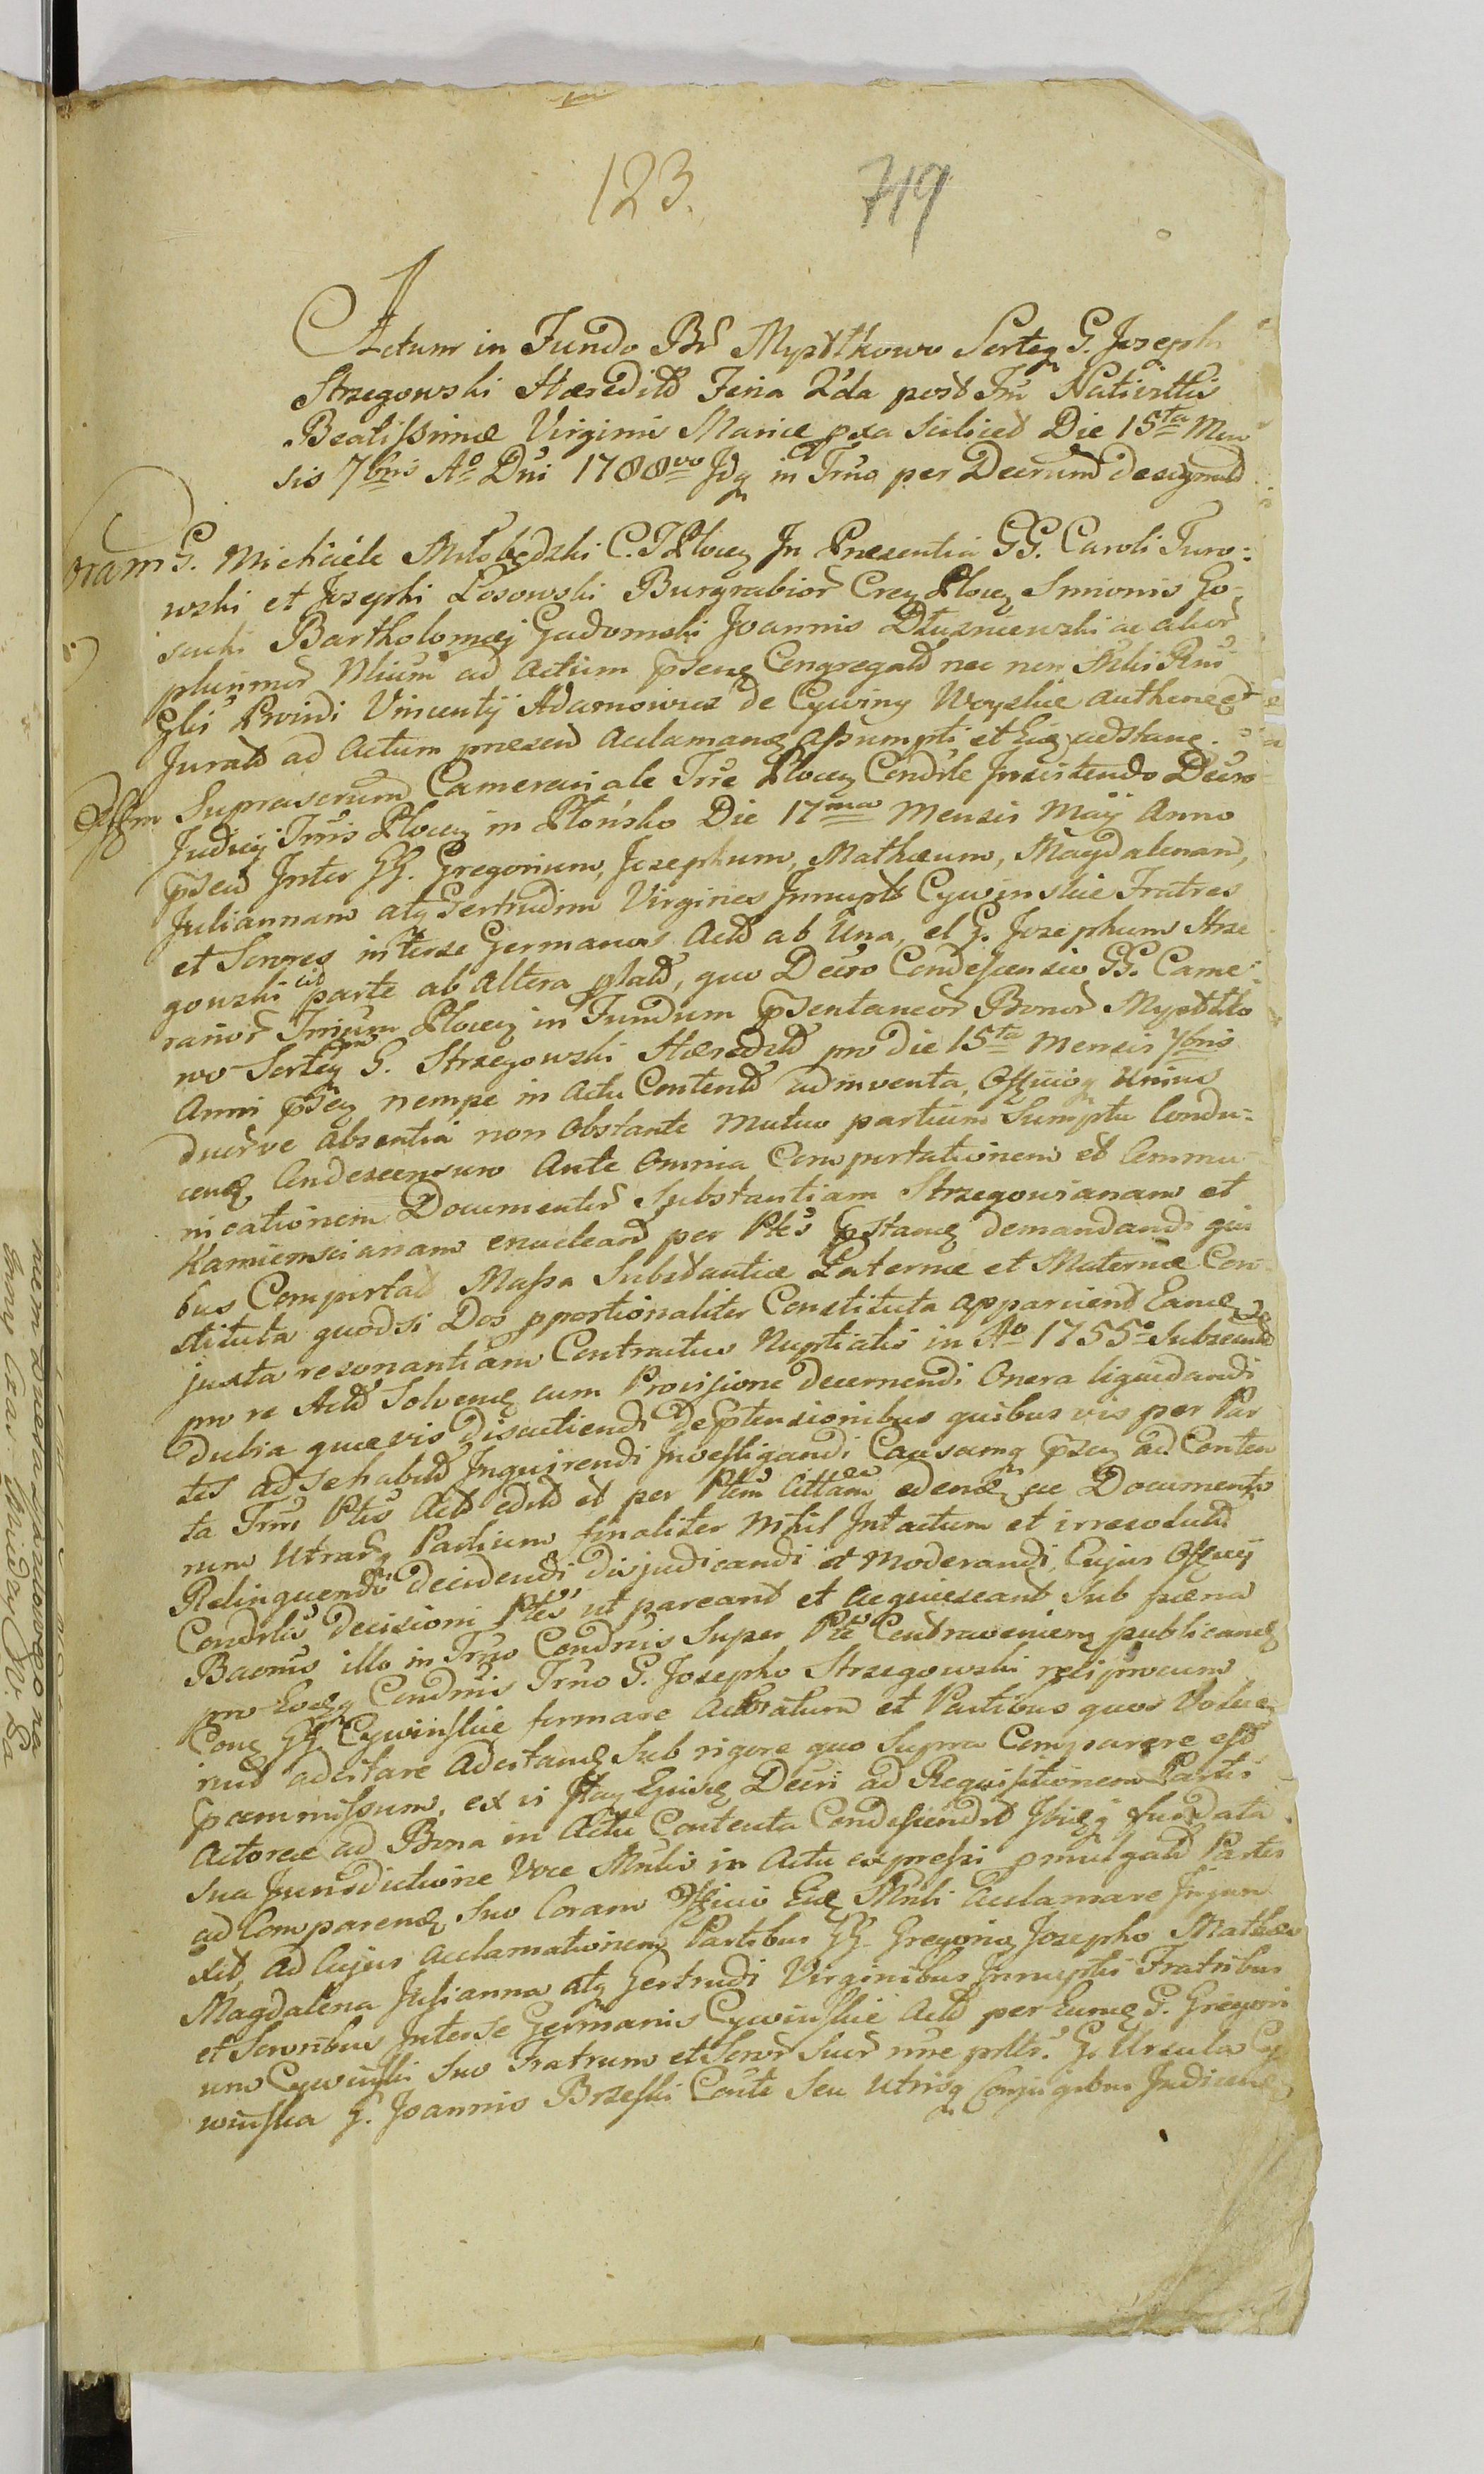 123. 719
Actum in Fundo Br̃ Mystkowo Sorteq G. Joseph
Strzegowski Hæredit̃ Feria 2da post Fm̃ Nativittis
Beatissimæ Virginis Mariæ pxa Scilicet Die 15ta Men
sis 7bris Ao Dni 1788vo Idq in Trno per Decrum designat̃
Coram G. Michaele Miłobędzki C. T Płocen In Præsentia GG. Caroli Turo:
wski et Josephi Łosowski Burgrabior̃ Cren Płocen Simionis Go-
sucki Bartholomæj Gadomski Joannis Dłuzniewski ac alior̃
plurimor̃ Nlium ad actum p̃sens Congregat̃ nec non Mlis Rni
Glis Prvidi Vincentij Adamowicz de Cywiny Woyskie authen et
Jurat̃ ad actum præsen̄ acclamanđ assumpti et Eiđ adstanđ.
Offm Suprascrum Camerariale Trræ Płocen Condle Insistendo Decro
Judicij Trris Płocen in Płońsko Die 17ma Mensis Maij Anno
p̃sen̄ Inter GG. Gregorium, Josephum, Mathæum, Magdalenam,
Juliannam atq Gertrudim Virgines Innupt̃ Cywinskie Fratres
et Sorores interse Germanos Act̃ ab Una, et G. Josephum Strze
gowski cit̃ parte ab altera plat̃, quo Decro Condescensio GG. Came
rarior̃ Trrium Płocen in Fundum p̃sentaneor̃ Bonor̃ Mystko
wo Sorteq G. Strzegowski Hæredit̃ pro die 15ta Mensis 7bris
Anni p̃sen nempe in actu Content̃ adinventa, Officioq Unius
duor̃ve absentia non obstante mutuo partium Sumptu Condu-
cenđ Condescensuro ante omnia Comportationem et Commu
nicationem Documentor̃ Substantiam Strzegowianam et
Kamienscianam enuclean̄ per Ptes p̃stanđ demandandi qui
bus Comportat̃ Massa Substantiæ Paternæ et Maternæ Con
stituta quodsi Dos pportionaliter Constituta apparuerit Eamđ
juxta resonantiam Contractus Nuptialis in Ao 1755o Subsecut̃
pro re Act̃ Solvenđ cum Provisione decernendi Onera liquidandi
dubia quævis discutiendi de p̃tensionibus quibusvis per Par
tes adse habit̃ Inquirendi Investigandi Causamq p̃sen ad Conten
ta Trni Ptis Act̃ edit̃ et per Ptem Cittam edenđ ac Documento
rum Utrarq Partium finaliter Nihil Intactum et irresolut̃
Relinquendo decidendi disjudicandi et moderandi, Cujus Officij
Condlis Decisioni Ptes ut pareant et acquiescant Sub pæna
Bacnis illo in Trno Condnis Super Pte Contravenien publicanđ
pro Eodq Condnis Trno G. Josepho Strzegowski reciprocum
Conđ GG Cywinskie formare Actoratum et Partibus quos Volue
rint adcitare adcitanđ Sub rigore quo Supra Comparere est
p̃missum, ex vi Decri ad Requisitionem Partis
Actoreæ ad Bona in Actu Contenta Condescendit Ibiđq fundata
Sua Jurisdictione Voce Mnlis in actu expressi pmulgat̃ Partes
ad Comparenđ Suo Coram Officio Eiđ Mnli acclamare Injun
xit, ad Cujus acclamationem Partibus GG. Gregorio Josepho Mathæo
Magdalena Julianna atq Gertrudi Virginibus Innuptis Fratribus
et Sororibus Interse Germanis Cywinskie Act̃ per Eumđ G. Gregori
um Cywinski Suo Fratrum et Soror̃ Suar̃ nne G. Ursula Cy
winska G. Joannis Brzeski Conte Seu utrisq Conjugibus